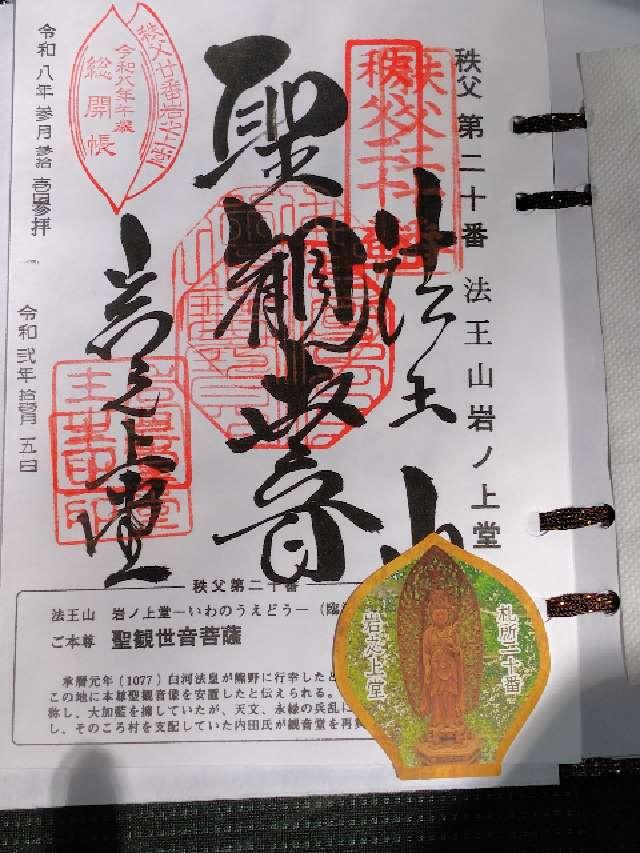 秩父 第二十番 法王山岩ノ上堂
法王山
聖観世音
岩之上堂
秩父廿番岩之上堂
令和八年午歳
総開帳
令和八年参月
壱回参拝
令和弐年
五日
秩父第二十番
法王山 岩ノ上堂―いわのうえどう―(臨
ご本尊 聖観世音菩薩
承暦元年(1077)白河法皇が熊野に行幸したと
この地に本尊聖観音像を安置したと伝えられる。
称し、大加藍を擁していたが、天文、永禄の兵乱に
し、そのころ村を支配していた内田氏が観音堂を再
札所二十番
岩之上堂